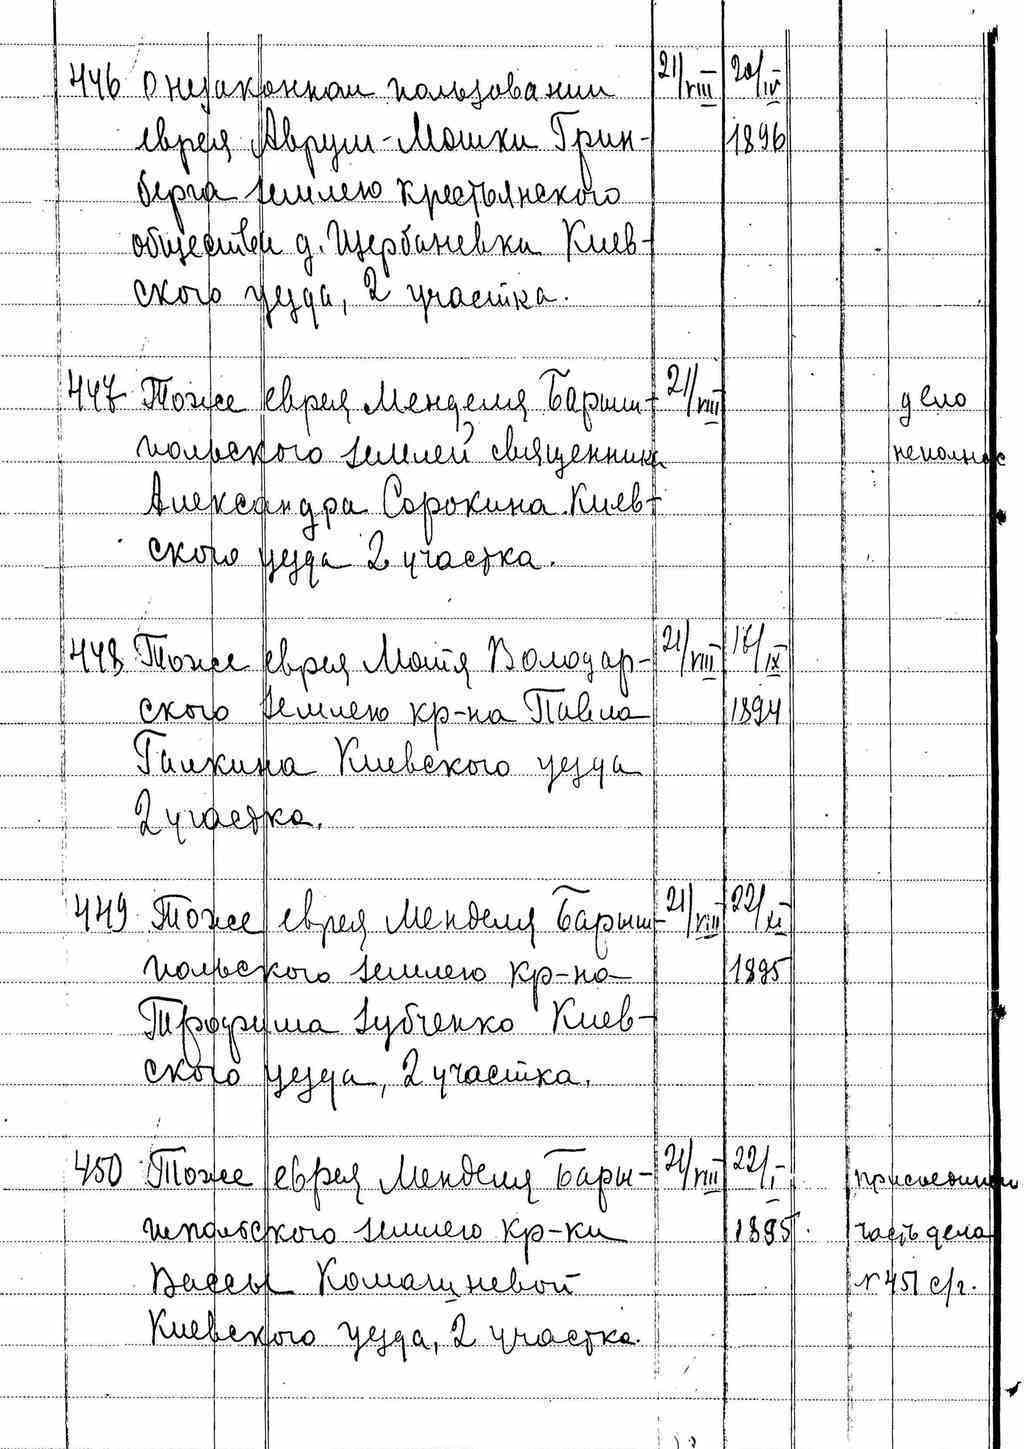 446 О незаконном пользовании 21/VIII 20/IV
еврея Аврум-Мошки Грин- 1896
берга землею крестьянского
общества д. Щербаневки Киев-
ского уезда, 2 участка.
447 Тоже еврея Менделя Барыш- 21/VIII дело
польского землей священника неполное
Александра Сорокина Киев-
ского уезда 2 участка.
448 Тоже еврея Мотя Володар- 21/VIII 16/IX
ского землею кр-на Павла 1894
Галкина Киевского уезда
2 участка.
449 Тоже еврея Менделя Барыш- 21/VIII 22/XI
польского землею кр-на 1895
Трофима Зубченко Киев-
ского уезда, 2 участка.
450 Тоже еврея Менделя Бары- 21/VIII 22/I
шпольского землею кр-ки 1895. часть дела
Вассы №451 с/г.
Киевского уезда, 2 участка.